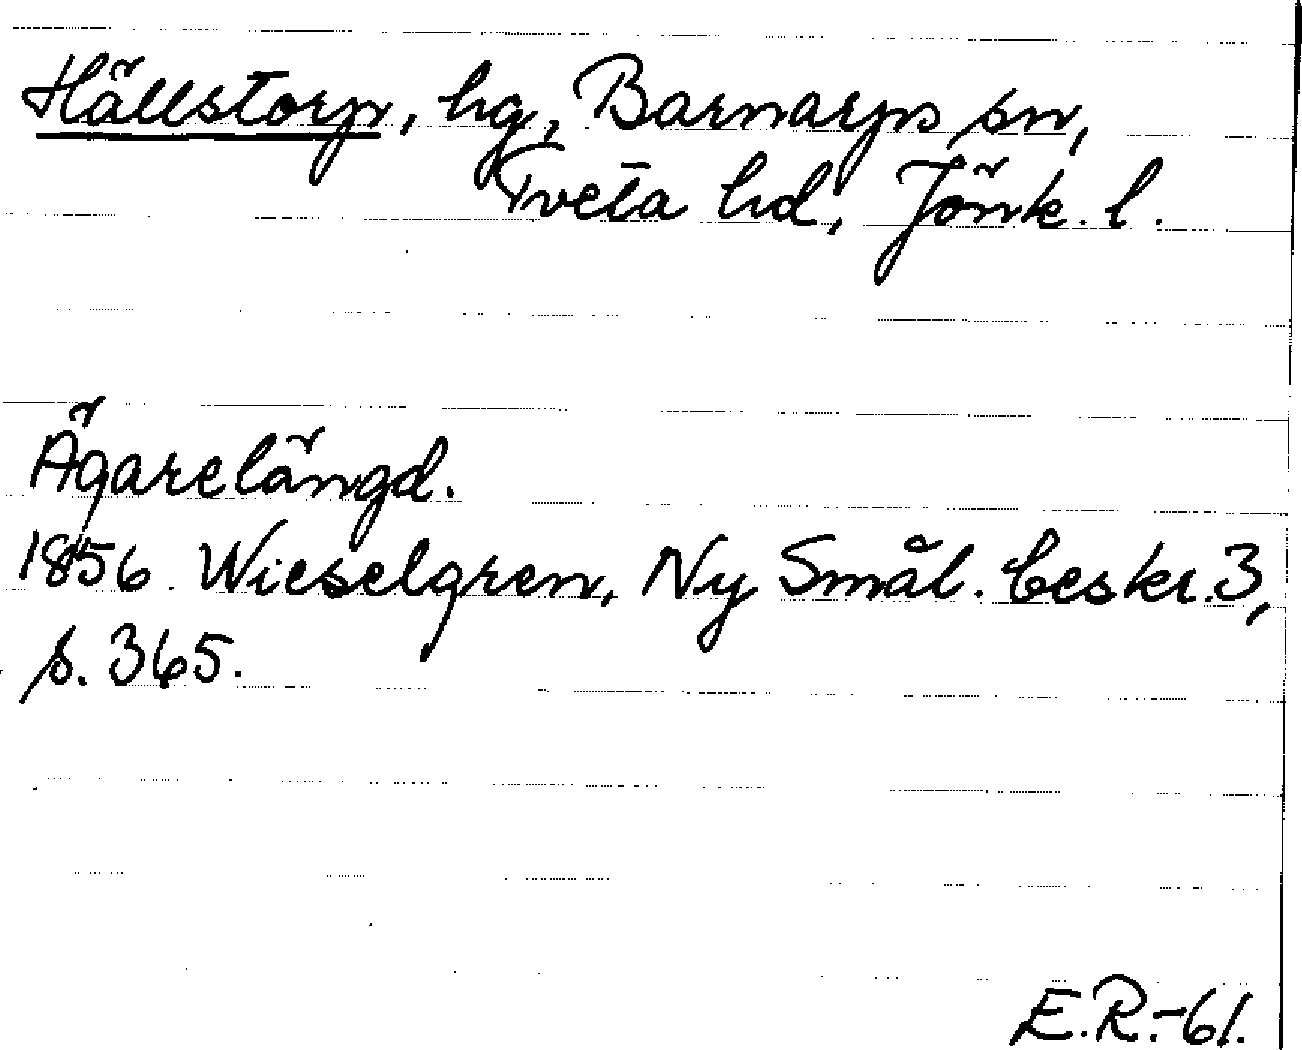 Hällstorp, hg, Barnarps sn,
Tveta hd, Jönk. l.
Ägarelängd.
1856. Wieselgren, Ny Smål. beskr. 3,
s. 365.
E.R.-61.